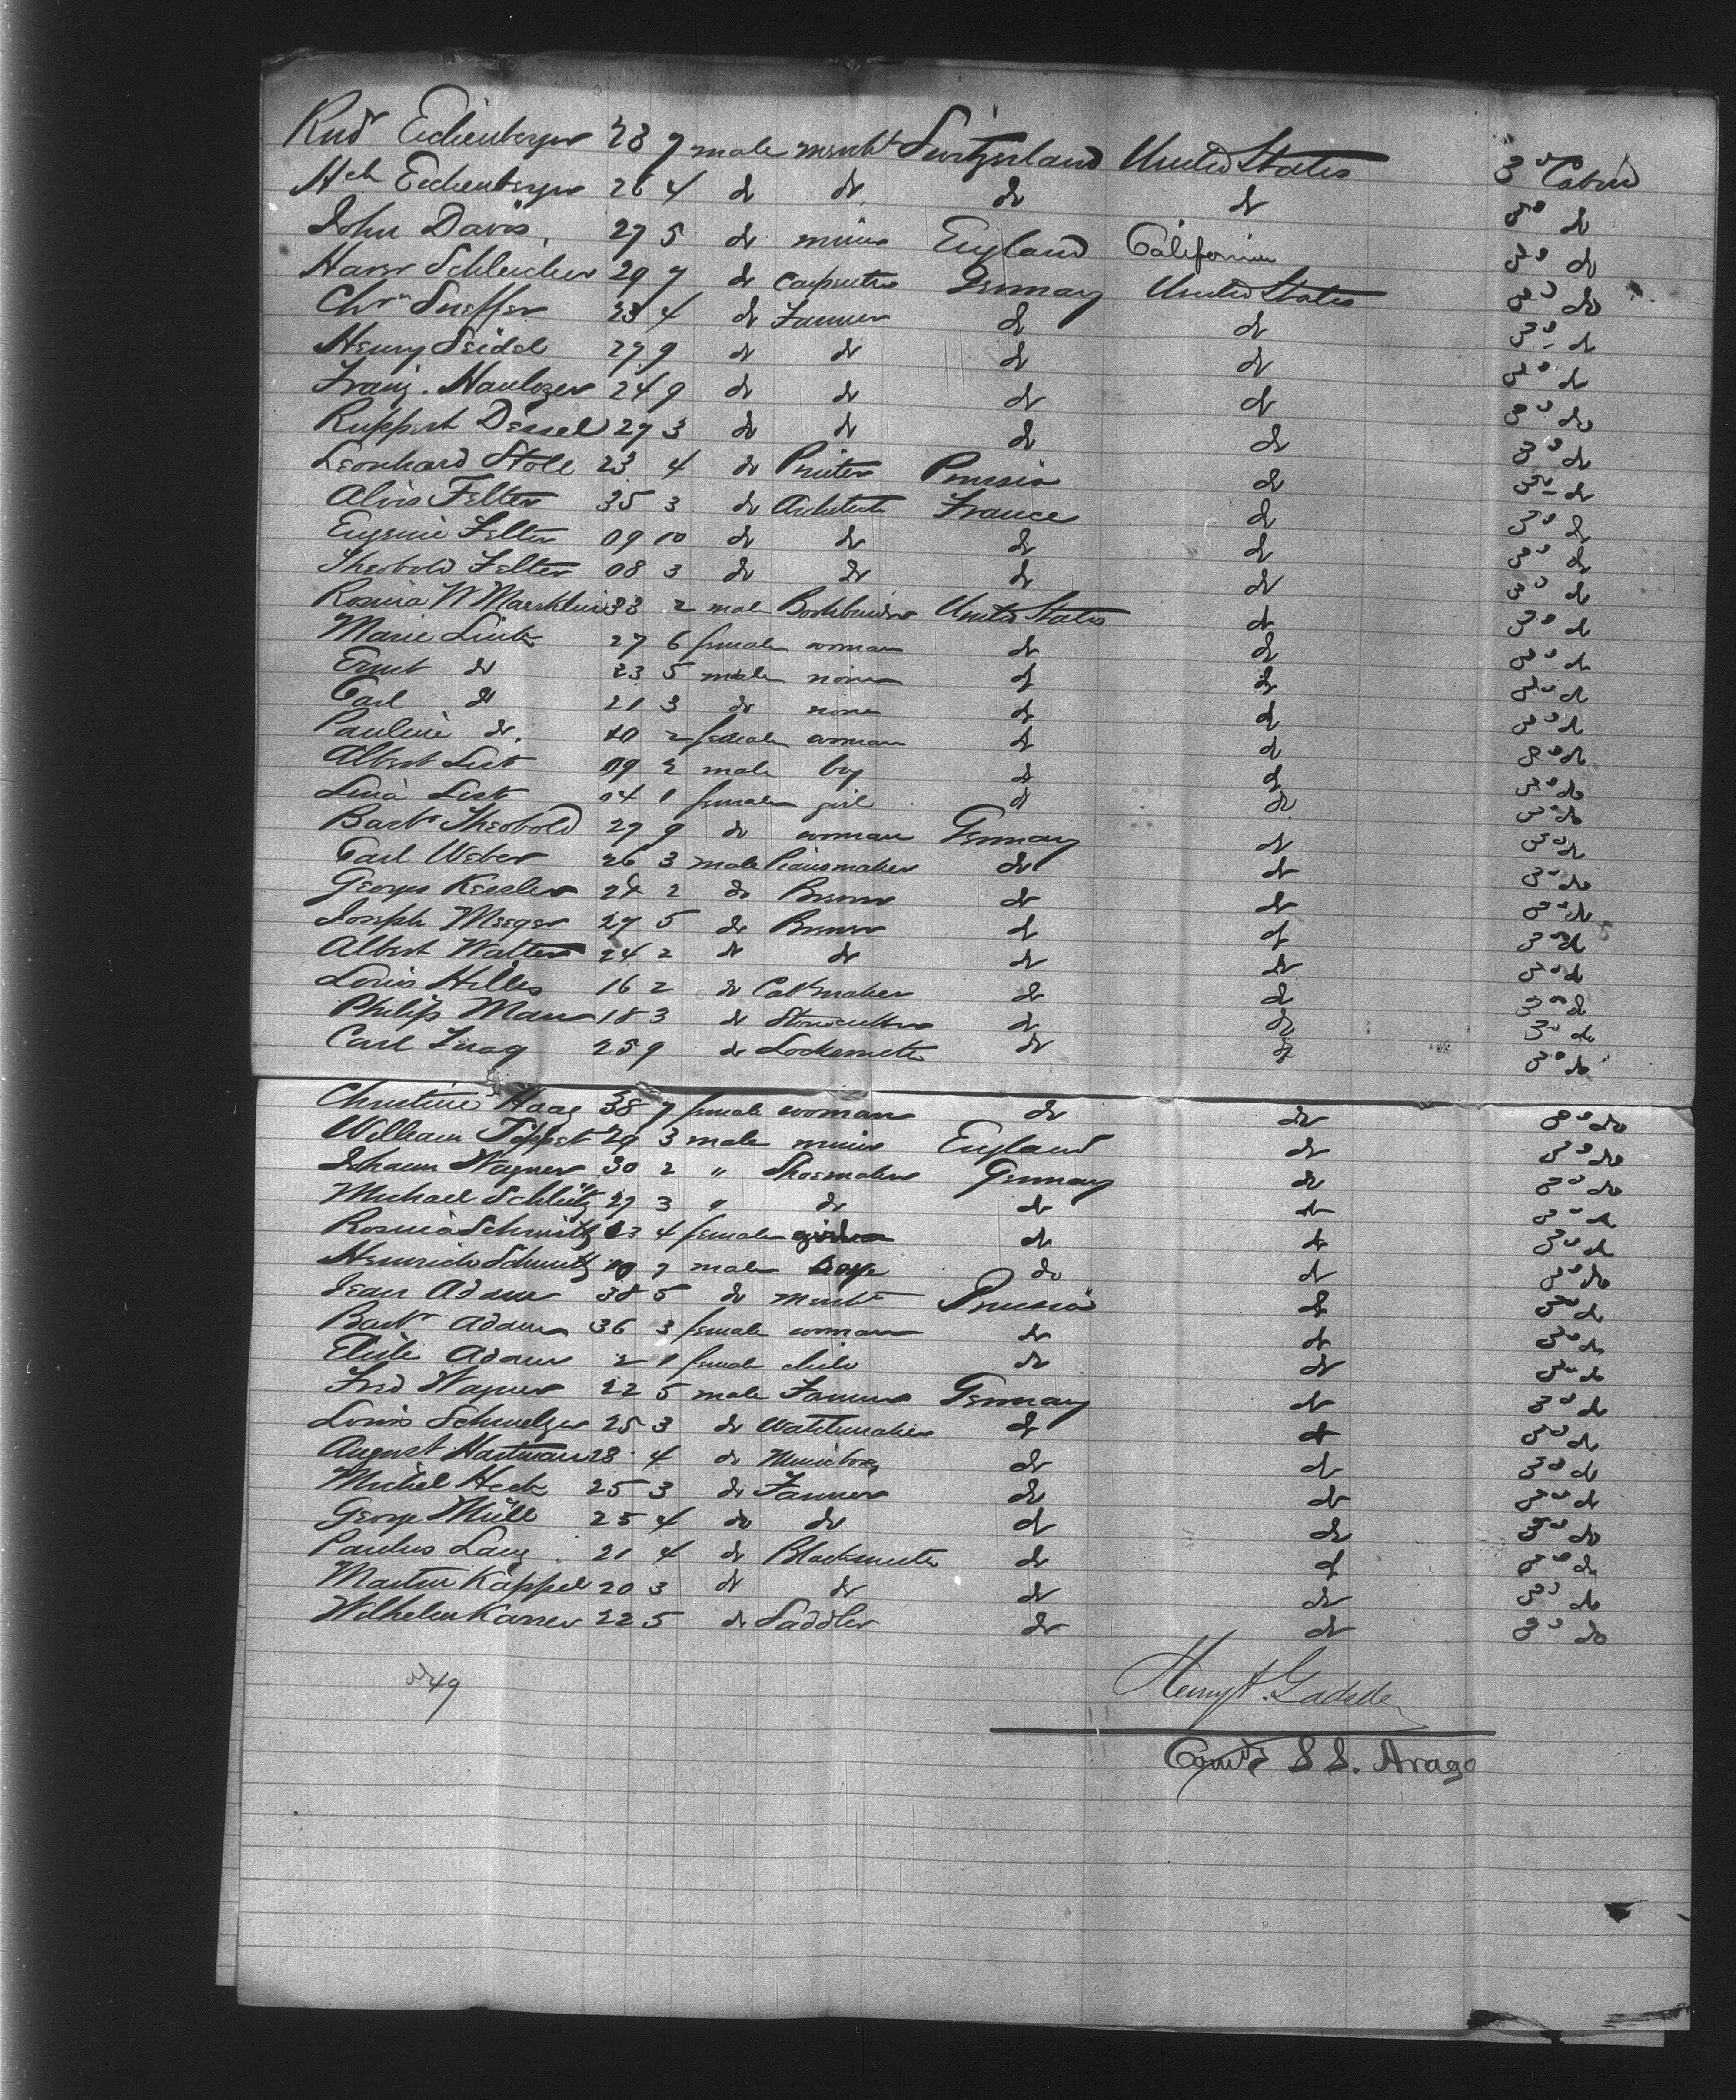 Rudr Eichenberger 28 7 male mercht Switzerland United States 3rd Cabin
Hch Eichenberger 26 4 do do do do 3rd do
John Davis 27 5 do miner England California 3rd do
Schleicher 29 7 do Carpenter Germany United States 3rd do
Chrn 23 4 do Farmer do do 3rd do
Henry Seidel 27 9 do do do do 3rd do
Franz 24 9 do do do do 3rd do
Ruppert Dessel 27 3 do do do do 3rd do
Leonhard Stoll 23 4 do Printer Prussia do 3rd do
Alois Felter 35 3 do Architect France do 3rd do
Eugenie Felter 09 10 do do do do 3rd do
Theobold Felter 08 3 do do do do 3rd do
Rosina W 33 2 male Bookbinder United States do 3rd do
Marie 27 6 female woman do do 3rd do
Ernst do 23 5 male none do do 3rd do
Carl do 21 3 do none do do 3rd do
Pauline do. 2 female woman do do 3rd do
Albert List 09 2 male boy do do 3rd do
Lina List 04 1 female girl do do 3rd do
Barba Theobold 29 9 do woman Germany do 3rd do
Carl Weber 26 3 male Pianomaker do do 3rd do
George Kessler 24 2 do Brewer do do 3rd do
Joseph Meeger 27 5 do Brewer do do 3rd do
Albert Walter 24 2 do do do do 3rd do
Louis Hilles 16 2 do Cabtmaker do do 3rd do
Philip Man 18 3 do Stonecutter do do 3rd do
Carl 25 9 do Locksmith do do 3rd do
Christine Haag 38 7 female woman do do 3rd do
William 29 3 male miner England do 3rd do
Johann Wagner 30 2 " Shoemaker Germany do 3rd do
Michael Schlutz 27 3 " do do do 3rd do
Rosina Schmitz 4 female girl do do 3rd do
Heinrich Schmitz 09 7 male boy do do 3rd do
Jean Adam 38 5 do mercht Prussia do 3rd do
Barba Adam 36 3 female woman do do 3rd do
Elise Adam 2 1 female child do do 3rd do
Fred Wagner 22 5 male Farmer Germany do 3rd do
Louis Schmelzer 25 3 do Watchmaker do do 3rd do
August Hartman 28 4 do do do 3rd do
Michel Heck 25 3 do Farmer do do 3rd do
George Müll 25 4 do do do do 3rd do
Paulus Lang 21 4 do Blacksmith do do 3rd do
Martin Kappel 20 3 do do do do 3rd do
Wilhelm Karrer 22 5 do Saddler do do 3rd do
49
Henry A. Gadsden
Comd'g S S. Arago